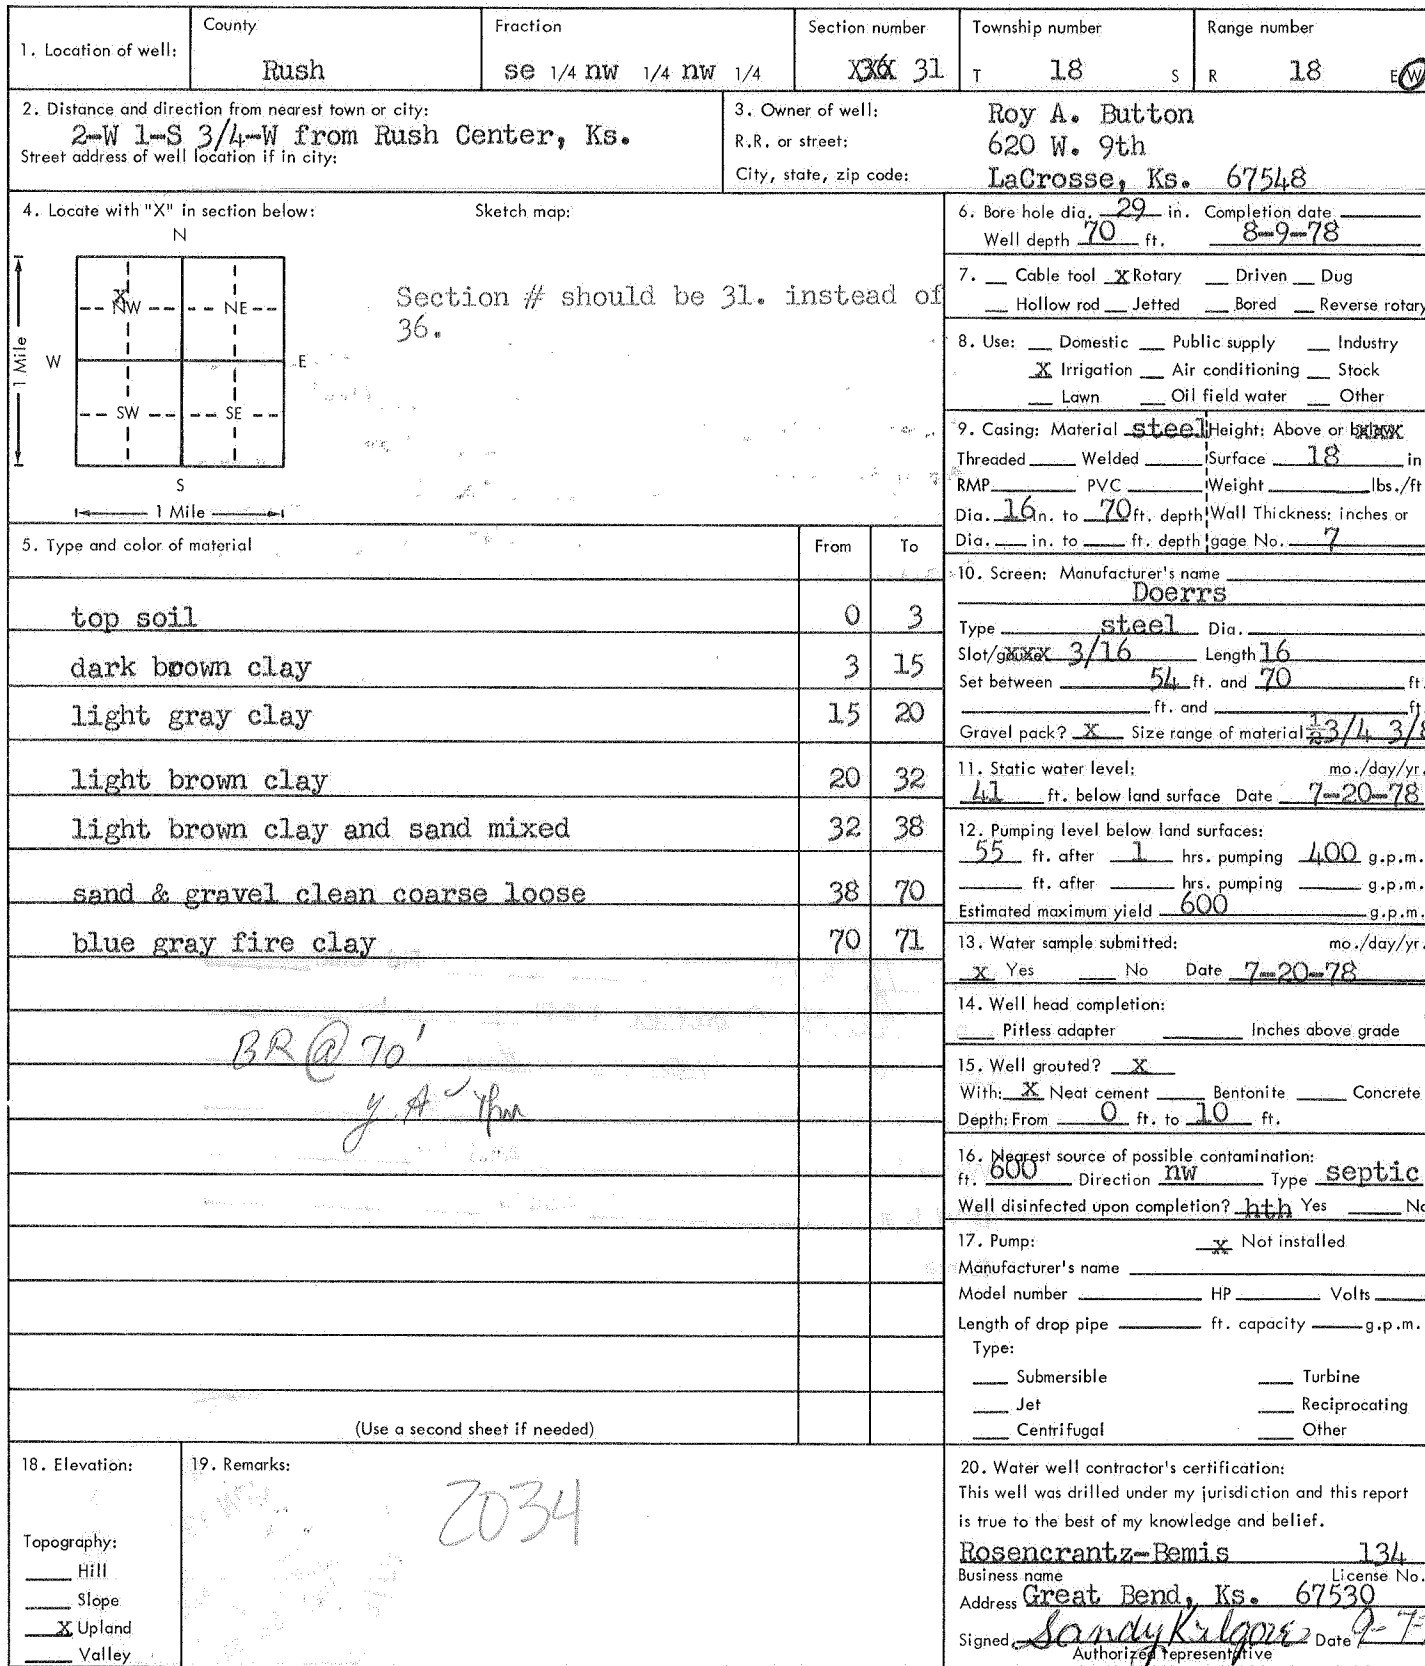 1. Location of well:
County
Rush
Fraction
se 1/4 nw 1/4 nw 1/4
Section number
31
Township number
T 18 S
Range number
R 18 E W
2. Distance and direction from nearest town or city:
2-W 1-S 3/4-W from Rush Center, Ks.
Street address of well location if in city:
3. Owner of well: Roy A. Button
R.R. or street: 620 W. 9th
City, state, zip code: LaCrosse, Ks. 67548
4. Locate with "X" in section below:
Sketch map:
N
X
NW NE
W E
SW SE
S
1 Mile
1 Mile
Section # should be 31. instead of
36.
5. Type and color of material From To
top soil 0 3
dark brown clay 3 15
light gray clay 15 20
light brown clay 20 32
light brown clay and sand mixed 32 38
sand & gravel clean coarse loose 38 70
blue gray fire clay 70 71
BR @ 70'
(Use a second sheet if needed)
6. Bore hole dia. 29 in. Completion date
Well depth 70 ft. 8-9-78
7. Cable tool X Rotary Driven Dug
Hollow rod Jetted Bored Reverse rotary
8. Use: Domestic Public supply Industry
X Irrigation Air conditioning Stock
Lawn Oil field water Other
9. Casing: Material steel Height: Above or
Threaded Welded Surface 18 in
RMP PVC Weight lbs./ft
Dia. 16 in. to 70 ft. depth Wall Thickness: inches or
Dia. in. to ft. depth gage No. 7
10. Screen: Manufacturer's name
Doerrs
Type steel Dia.
Slot/ 3/16 Length 16
Set between 54 ft. and 70 ft.
ft. and ft.
Gravel pack? X Size range of material 1/2 3/4 3/8
11. Static water level: mo./day/yr.
41 ft. below land surface Date 7-20-78
12. Pumping level below land surfaces:
55 ft. after 1 hrs. pumping 400 g.p.m.
ft. after hrs. pumping g.p.m.
Estimated maximum yield 600 g.p.m.
13. Water sample submitted: mo./day/yr.
x Yes No Date 7-20-78
14. Well head completion:
Pitless adapter Inches above grade
15. Well grouted? X
With: X Neat cement Bentonite Concrete
Depth: From 0 ft. to 10 ft.
16. Nearest source of possible contamination:
ft. 600 Direction nw Type septic
Well disinfected upon completion? hth Yes No
17. Pump: x Not installed
Manufacturer's name
Model number HP Volts
Length of drop pipe ft. capacity g.p.m.
Type:
Submersible Turbine
Jet Reciprocating
Centrifugal Other
18. Elevation:
Topography:
Hill
Slope
X Upland
Valley
19. Remarks:
2034
20. Water well contractor's certification:
This well was drilled under my jurisdiction and this report
is true to the best of my knowledge and belief.
Rosencrantz-Bemis 134
Business name License No.
Address Great Bend, Ks. 67530
Signed Sandy Kilgore Date 9-7-
Authorized representative